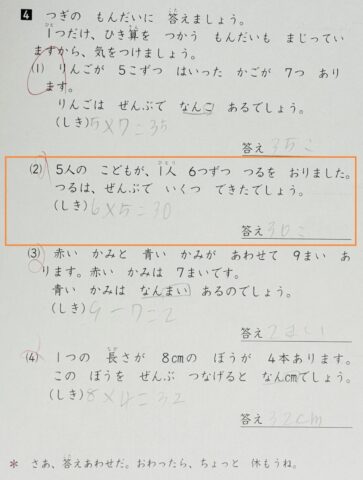 4 つぎの もんだいに 答えましょう。
1つだけ、ひき算を つかう もんだいも まじってい
ますから、気をつけましょう。
(1) りんごが 5こずつ はいった かごが 7つ あり
ます。
りんごは ぜんぶで なんこ あるでしょう。
(しき) 5×7=35
答え 35こ
(2) 5人の こどもが、1人 6つずつ つるを おりました。
つるは、ぜんぶで いくつ できたでしょう。
(しき) 6×5=30
答え 30こ
(3) 赤い かみと 青い かみが あわせて 9まい あ
ります。赤い かみは 7まいです。
青い かみは なんまい あるのでしょう。
(しき) 9-7=2
答え 2まい
(4) 1つの 長さが 8cmの ぼうが 4本あります。
この ぼうを ぜんぶ つなげると なんcmでしょう。
(しき) 8×4=32
答え 32cm
* さあ、答えあわせだ。おわったら、ちょっと 休もうね。